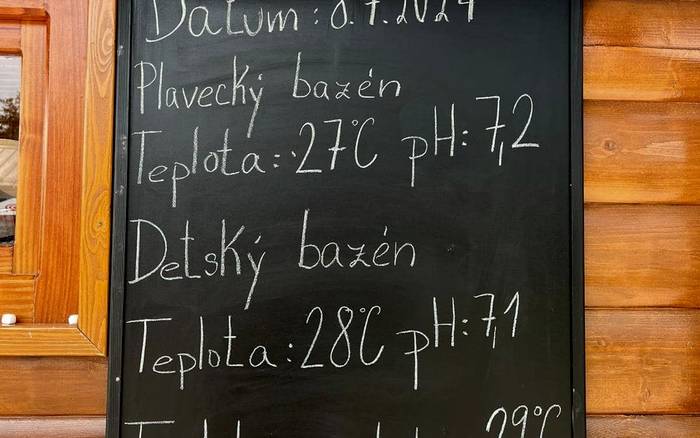 Dátum: 8.7.2024
Plavecký bazén
Teplota: 27°C pH: 7,2
Detský bazén
Teplota: 28°C pH: 7,1
29°C